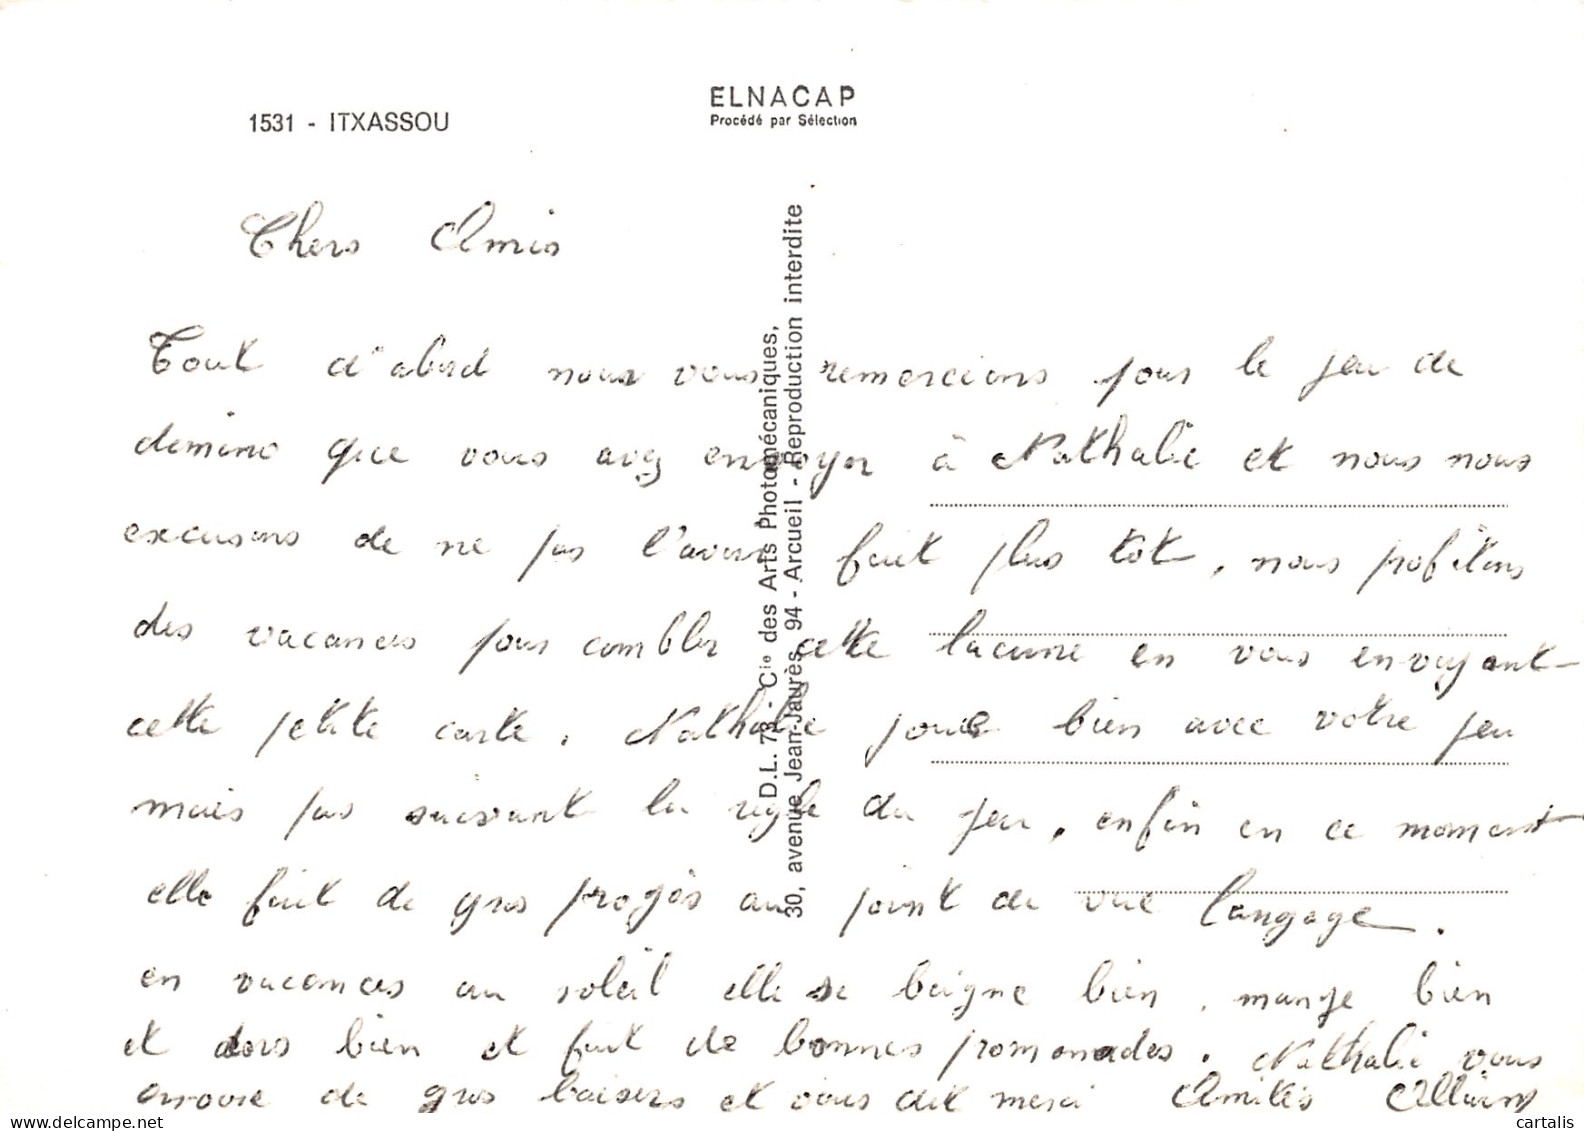 ELNACAP
Procédé par Sélection
1531 - ITXASSOU
Chers Amis
Tout d'abord nous vous remercions pour le jeu de
domino que vous avez envoyer à Nathalie et nous nous
excusons de ne pas l'avoir fait plus tôt, nous profitons
des vacances pour combler cette lacune en vous envoyant
cette petite carte. Nathalie joue bien avec votre jeu
mais pas suivant la règle du jeu, enfin en ce moment
elle fait de gros progès au point de vue langage.
en vacances au soleil elle se baigne bien, mange bien
et dors bien et fait de bonnes promenades. Nathalie vous
envoie de gros baisers et vous dit merci Amitiés
D.L. 73 - Cie des Arts Photomécaniques,
30, avenue Jean-Jaurès, 94 - Arcueil - Reproduction interdite
cartalis